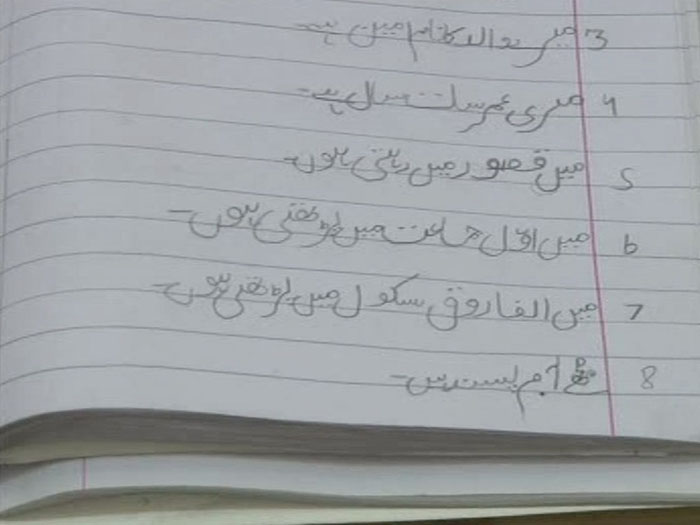 3 میرے والد کا نام مبین ہے۔
4 میری عمر سات سال ہے۔
5 میں قصور میں رہتی ہوں۔
6 میں اول جماعت میں پڑھتی ہوں۔
7 میں الفاروق سکول میں پڑھتی ہوں۔
8 مجھے آم پسند ہیں۔